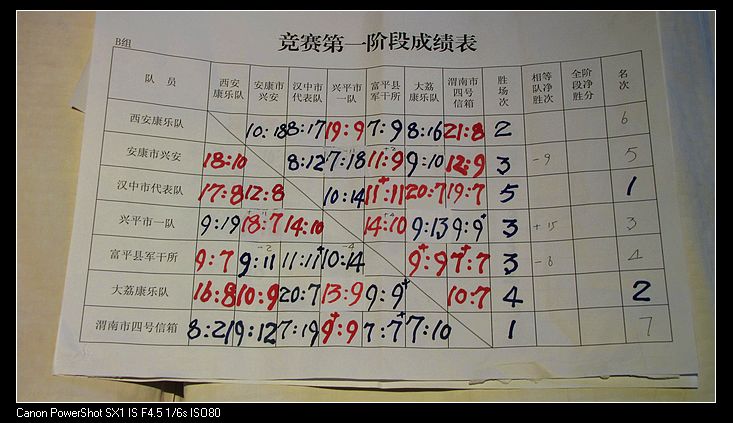 竞赛第一阶段成绩表
B组
队 员 西安康乐队 安康市兴安 汉中市代表队 兴平市一队 富平县军干所 大荔康乐队 渭南市四号信箱 胜场次 相等队净胜次 全阶段净胜分 名次
西安康乐队 10:18 8:17 19:9 7:9 8:16 21:8 2 6
安康市兴安 18:10 8:12 7:18 11:9 9:10 12:9 3 -9 5
汉中市代表队 17:8 12:8 10:14 11:11 20:7 19:7 5 1
兴平市一队 9:19 18:7 14:10 14:10 9:13 9:9+ 3 +15 3
富平县军干所 9:7 9:11 11:11+ 10:14 9+:9 7+:7 3 -6 4
大荔康乐队 16:8 10:9 7:20 13:9 9:9+ 10:7 4 2
渭南市四号信箱 8:21 9:12 7:19 9+:9 7:7+ 7:10 1 7
Canon PowerShot SX1 IS F4.5 1/6s ISO80